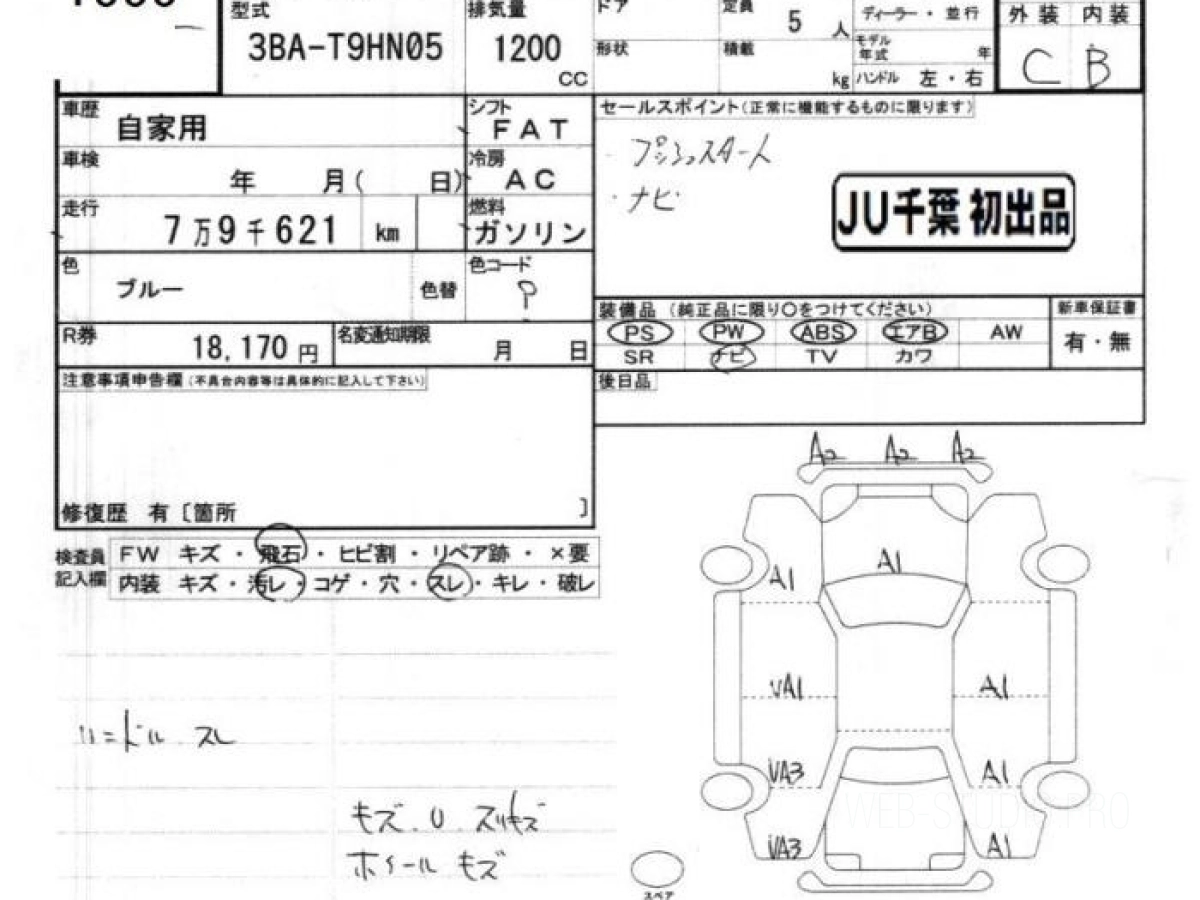 型式 排気量 ドア 定員 5 人 ディーラー・並行 外装 内装
3BA-T9HN05 1200 CC 形状 積載 kg モデル年式 年 C B
ハンドル 左・右
車歴 自家用 シフト FAT セールスポイント(正常に機能するものに限ります)
車検 年 月( 日) 冷房 AC ・プッシュスタート
・ナビ
JU千葉 初出品
走行 7万9千621 km 燃料 ガソリン
色 ブルー 色替 色コード P
装備品 (純正品に限り○をつけてください) 新車保証書
PS PW ABS エアB AW 有・無
SR ナビ TV カワ
R券 18,170円 名変通知期限 月 日
注意事項申告欄(不具合内容等は具体的に記入して下さい) 後日品
修復歴 有〔箇所 〕
検査員 FW キズ・飛石・ヒビ割・リペア跡・×要
記入欄 内装 キズ・汚レ・コゲ・穴・スレ・キレ・破レ
ハンドル スレ
キズ.U.スリキズ
ホイール キズ
A2 A2 A2
A1 A1
VA1 A1
VA3 A1
VA3 A1
スペア
WEB-STUDIO.PRO